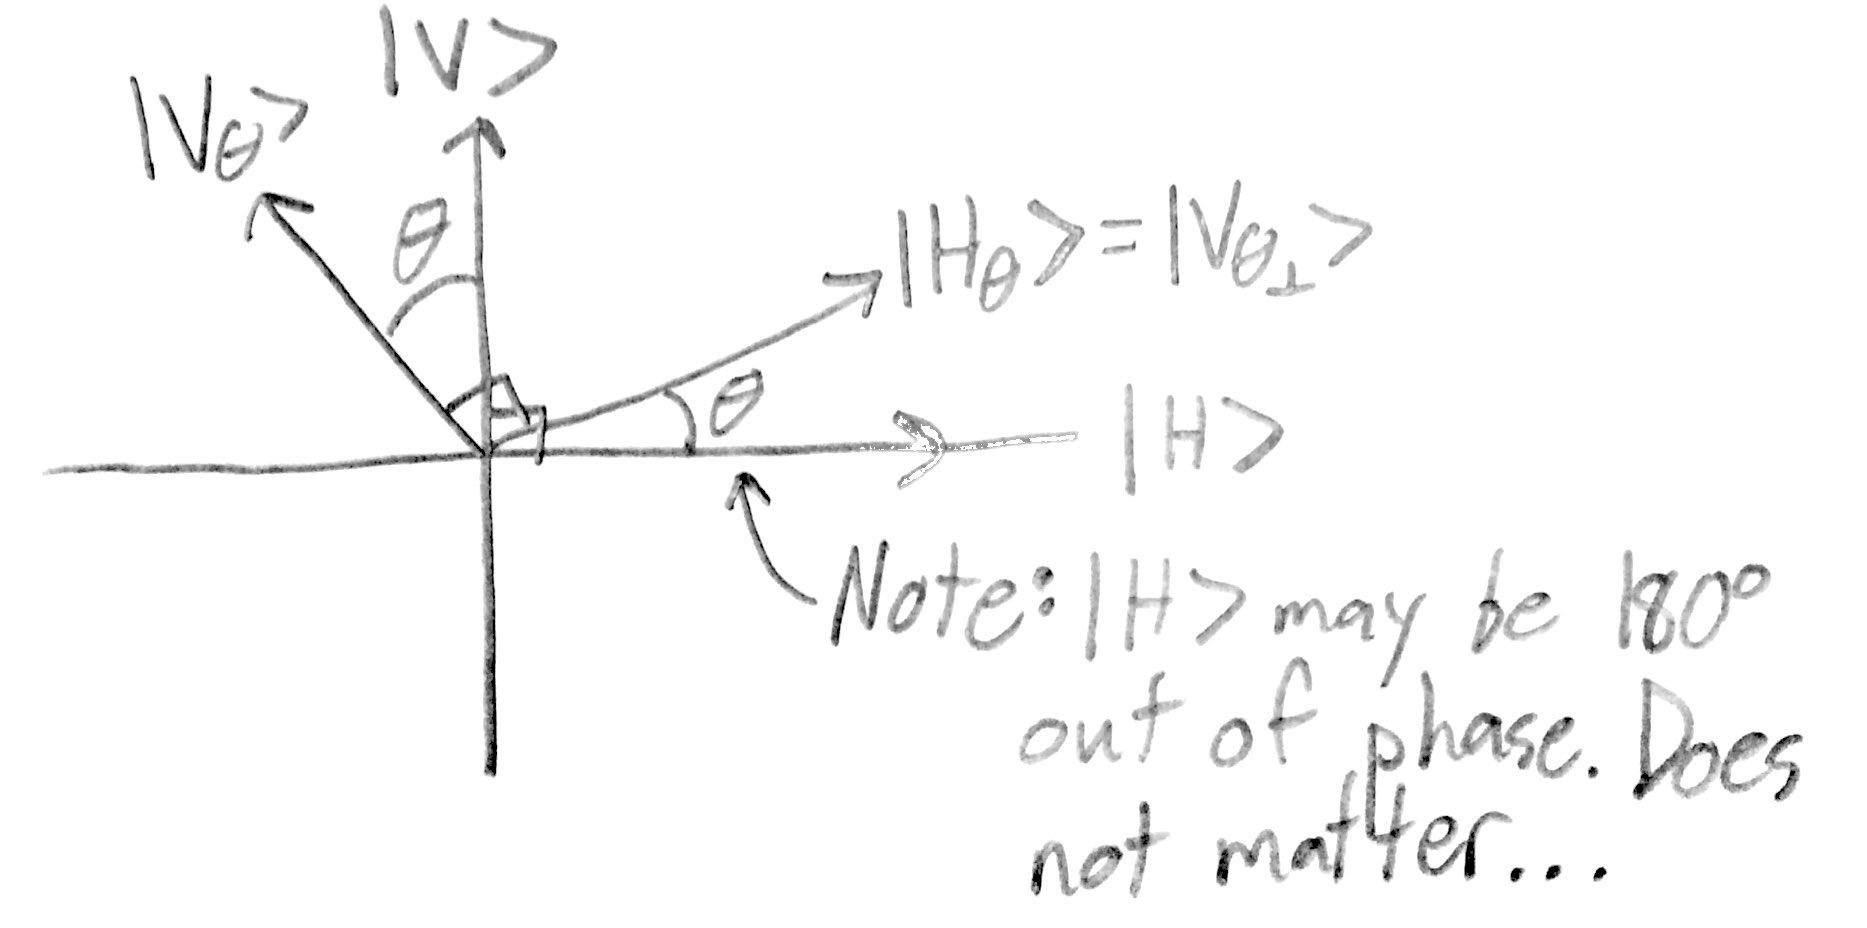 |V>
|Vθ>
θ
|Hθ> = |Vθ⊥>
θ
|H>
Note: |H> may be 180°
out of phase. Does
not matter...